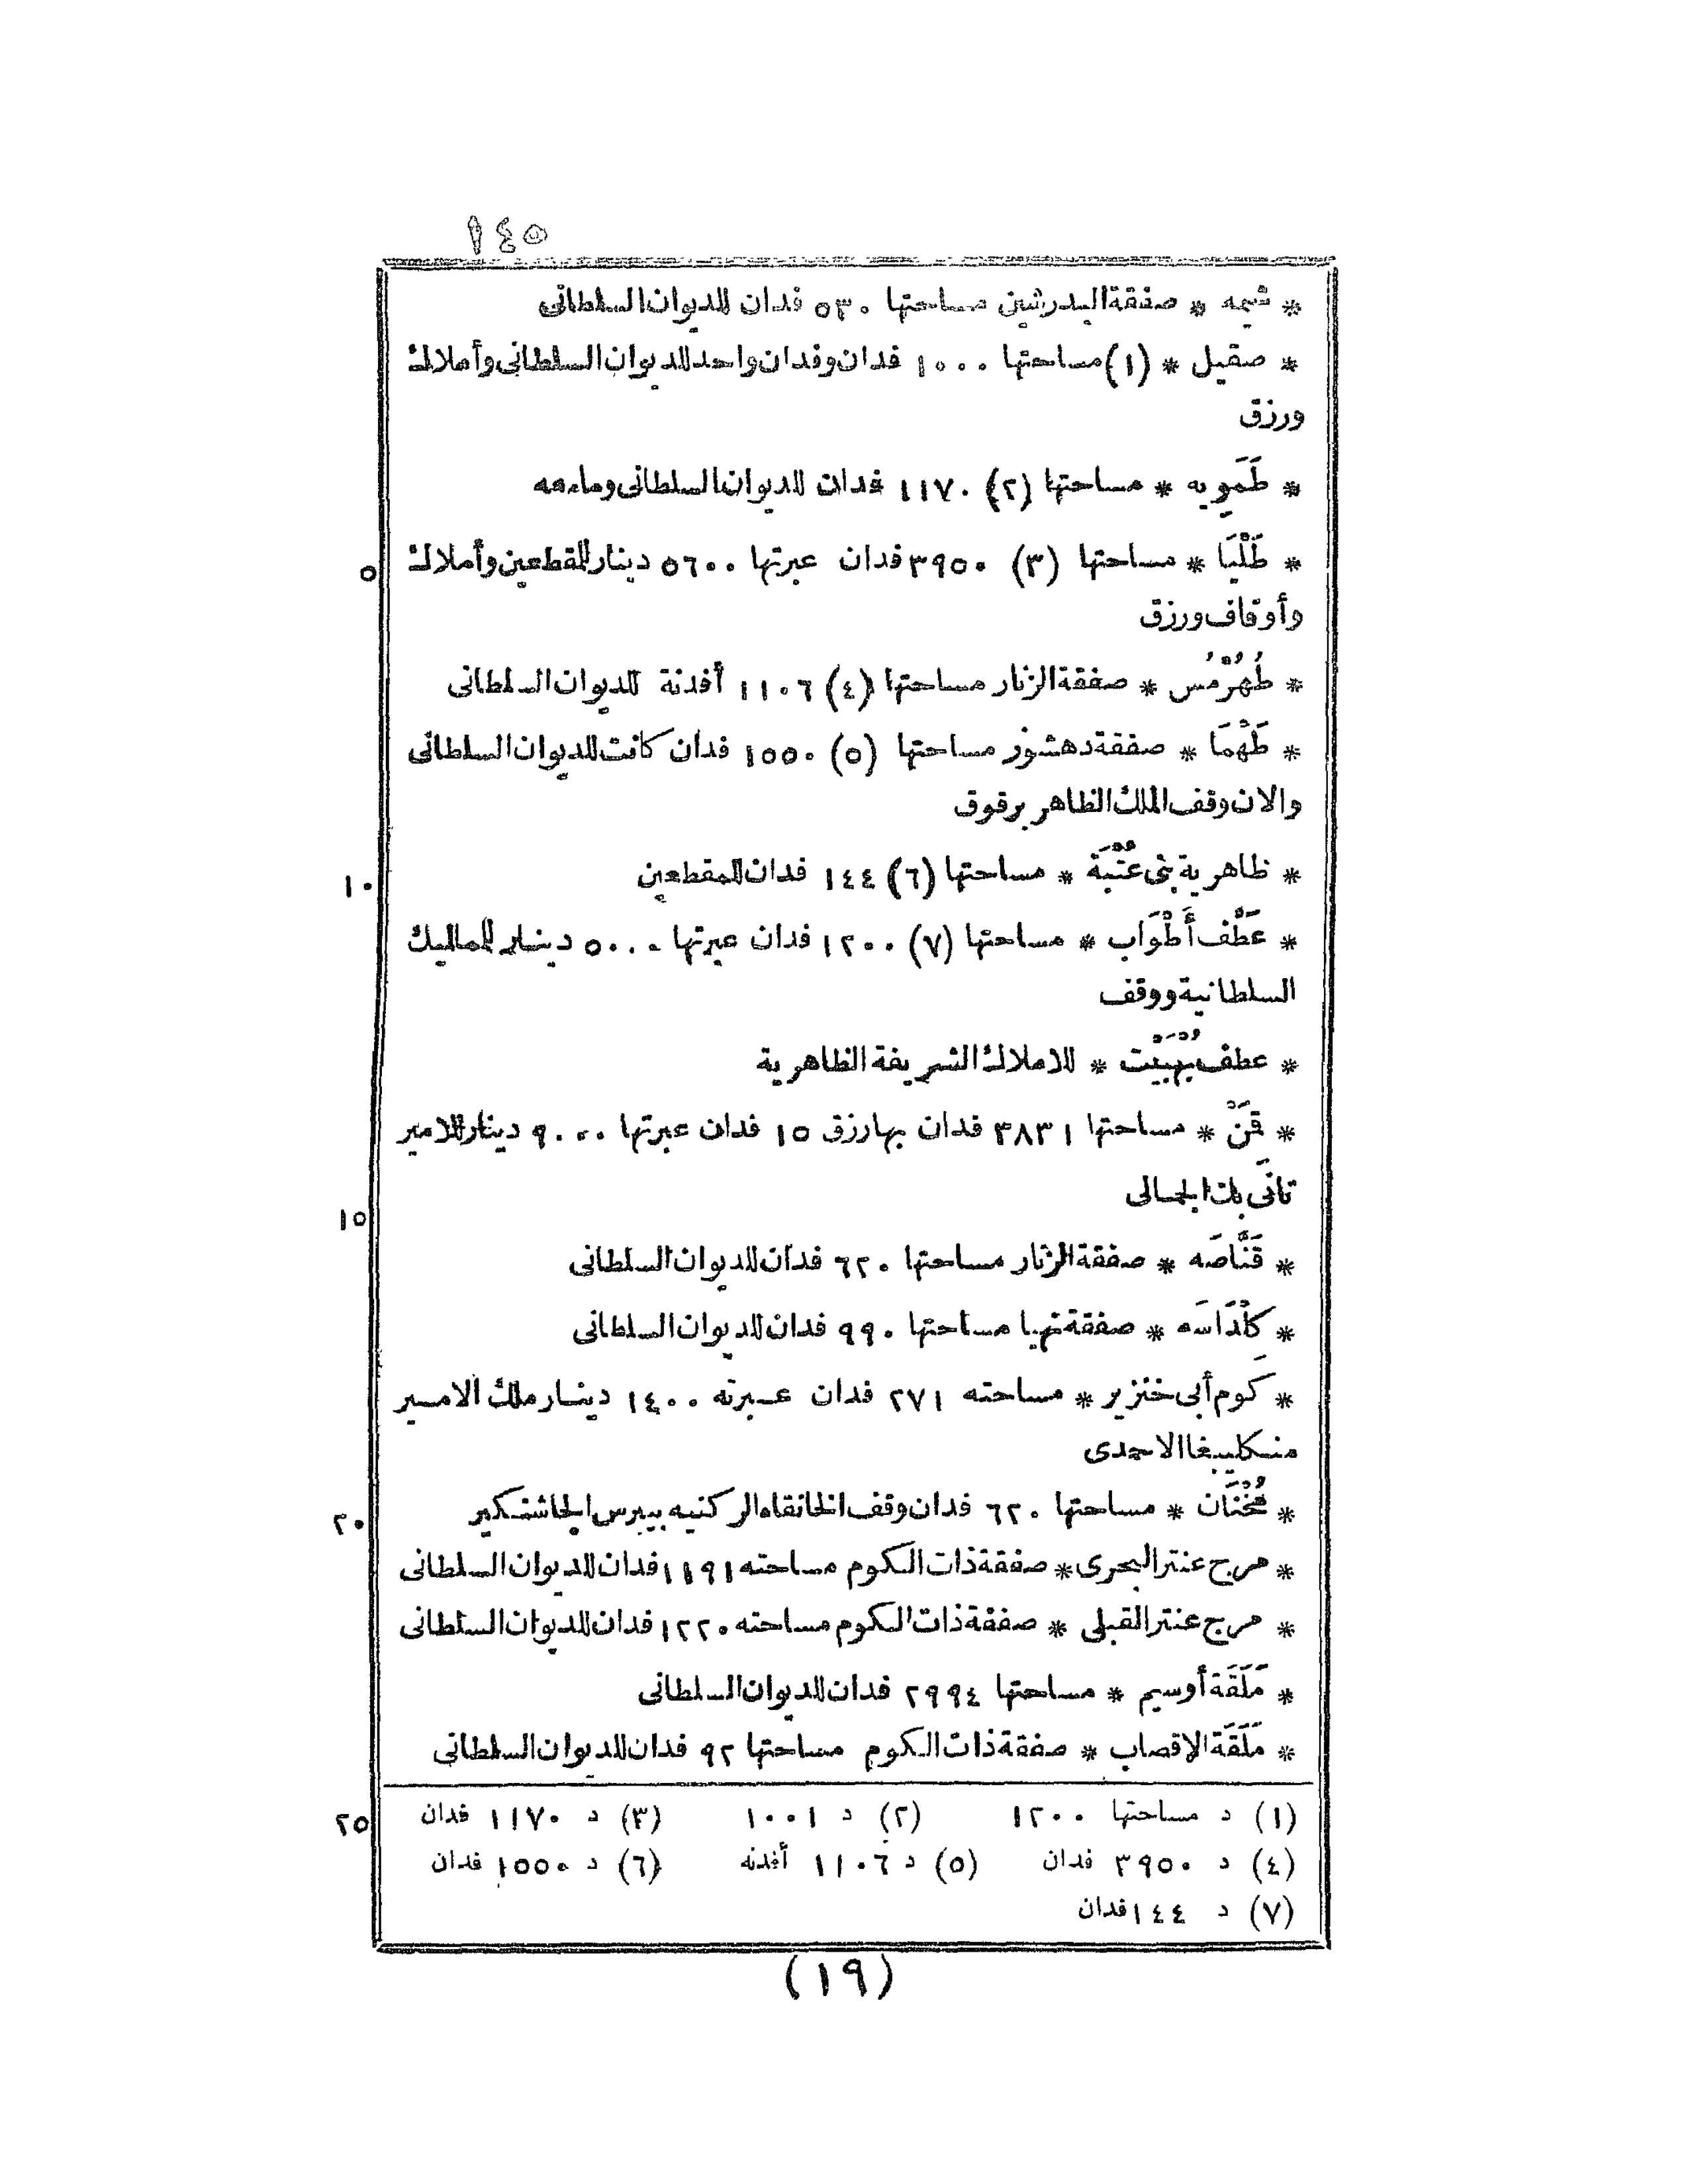 ١٤٥
* شيمه * صفقة البدرشين مساحتها ٥٣٠ فدان للديوان السلطانى
* صقيل * (١) مساحتها ١٠٠٠ فدان وفدان واحد للديوان السلطانى وأملاك
ورزق
* طَمَويه * مساحتها (٢) ١١٧٠ فدان للديوان السلطانى وما معه
٥ * طَلْيَا * مساحتها (٣) ٣٩٥٠ فدان عبرتها ٥٦٠٠ دينار للمقطعين وأملاك
وأوقاف ورزق
* طُهُرْمُس * صفقة الزنار مساحتها (٤) ١١٠٦ أفدنة للديوان السلطانى
* طَهْمَا * صفقة دهشور مساحتها (٥) ١٥٥٠ فدان كانت للديوان السلطانى
والان وقف الملك الظاهر برقوق
١٠ * ظاهرية بنى عُتْبَة * مساحتها (٦) ١٤٤ فدان للمقطعين
* عَطْف أَطْوَاب * مساحتها (٧) ١٢٠٠ فدان عبرتها ٥٠٠٠ دينار للماليك
السلطانية ووقف
* عطف بُهْبَيْت * للاملاك الشريفة الظاهرية
* قَمَنْ * مساحتها ٣٨٣١ فدان بها رزق ١٥ فدان عبرتها ٩٠٠٠ دينار للامير
١٥ تانَى بك الجمالى
* قَنَّاصَه * صفقة الزنار مساحتها ٦٢٠ فدان للديوان السلطانى
* كَلْدَاسَه * صفقة نهيا مساحتها ٩٩٠ فدان للديوان السلطانى
* كَوم أبى خنزير * مساحته ٢٧١ فدان عبرته ١٤٠٠ دينار ملك الامير
منكليبغا الاحمدى
٢٠ * مُخْنَان * مساحتها ٦٢٠ فدان وقف الخانقاه الركنيه بيبرس الجاشنكير
* مرج عنتر البحرى * صفقة ذات الكوم مساحته ١١٩١ فدان للديوان السلطانى
* مرج عنتر القبلى * صفقة ذات الكوم مساحته ١٢٢٠ فدان للديوان السلطانى
* مَلَقَة أوسيم * مساحتها ٢٩٩٤ فدان للديوان السلطانى
* مَلَقَة الاقصاب * صفقة ذات الكوم مساحتها ٩٢ فدان للديوان السلطانى
٢٥ (١) د مساحتها ١٢٠٠ (٢) د ١٠٠١ (٣) د ١١٧٠ فدان
(٤) د ٣٩٥٠ فدان (٥) د ١١٠٦ أفدنه (٦) د ١٥٥٠ فدان
(٧) د ١٤٤ فدان
(١٩)